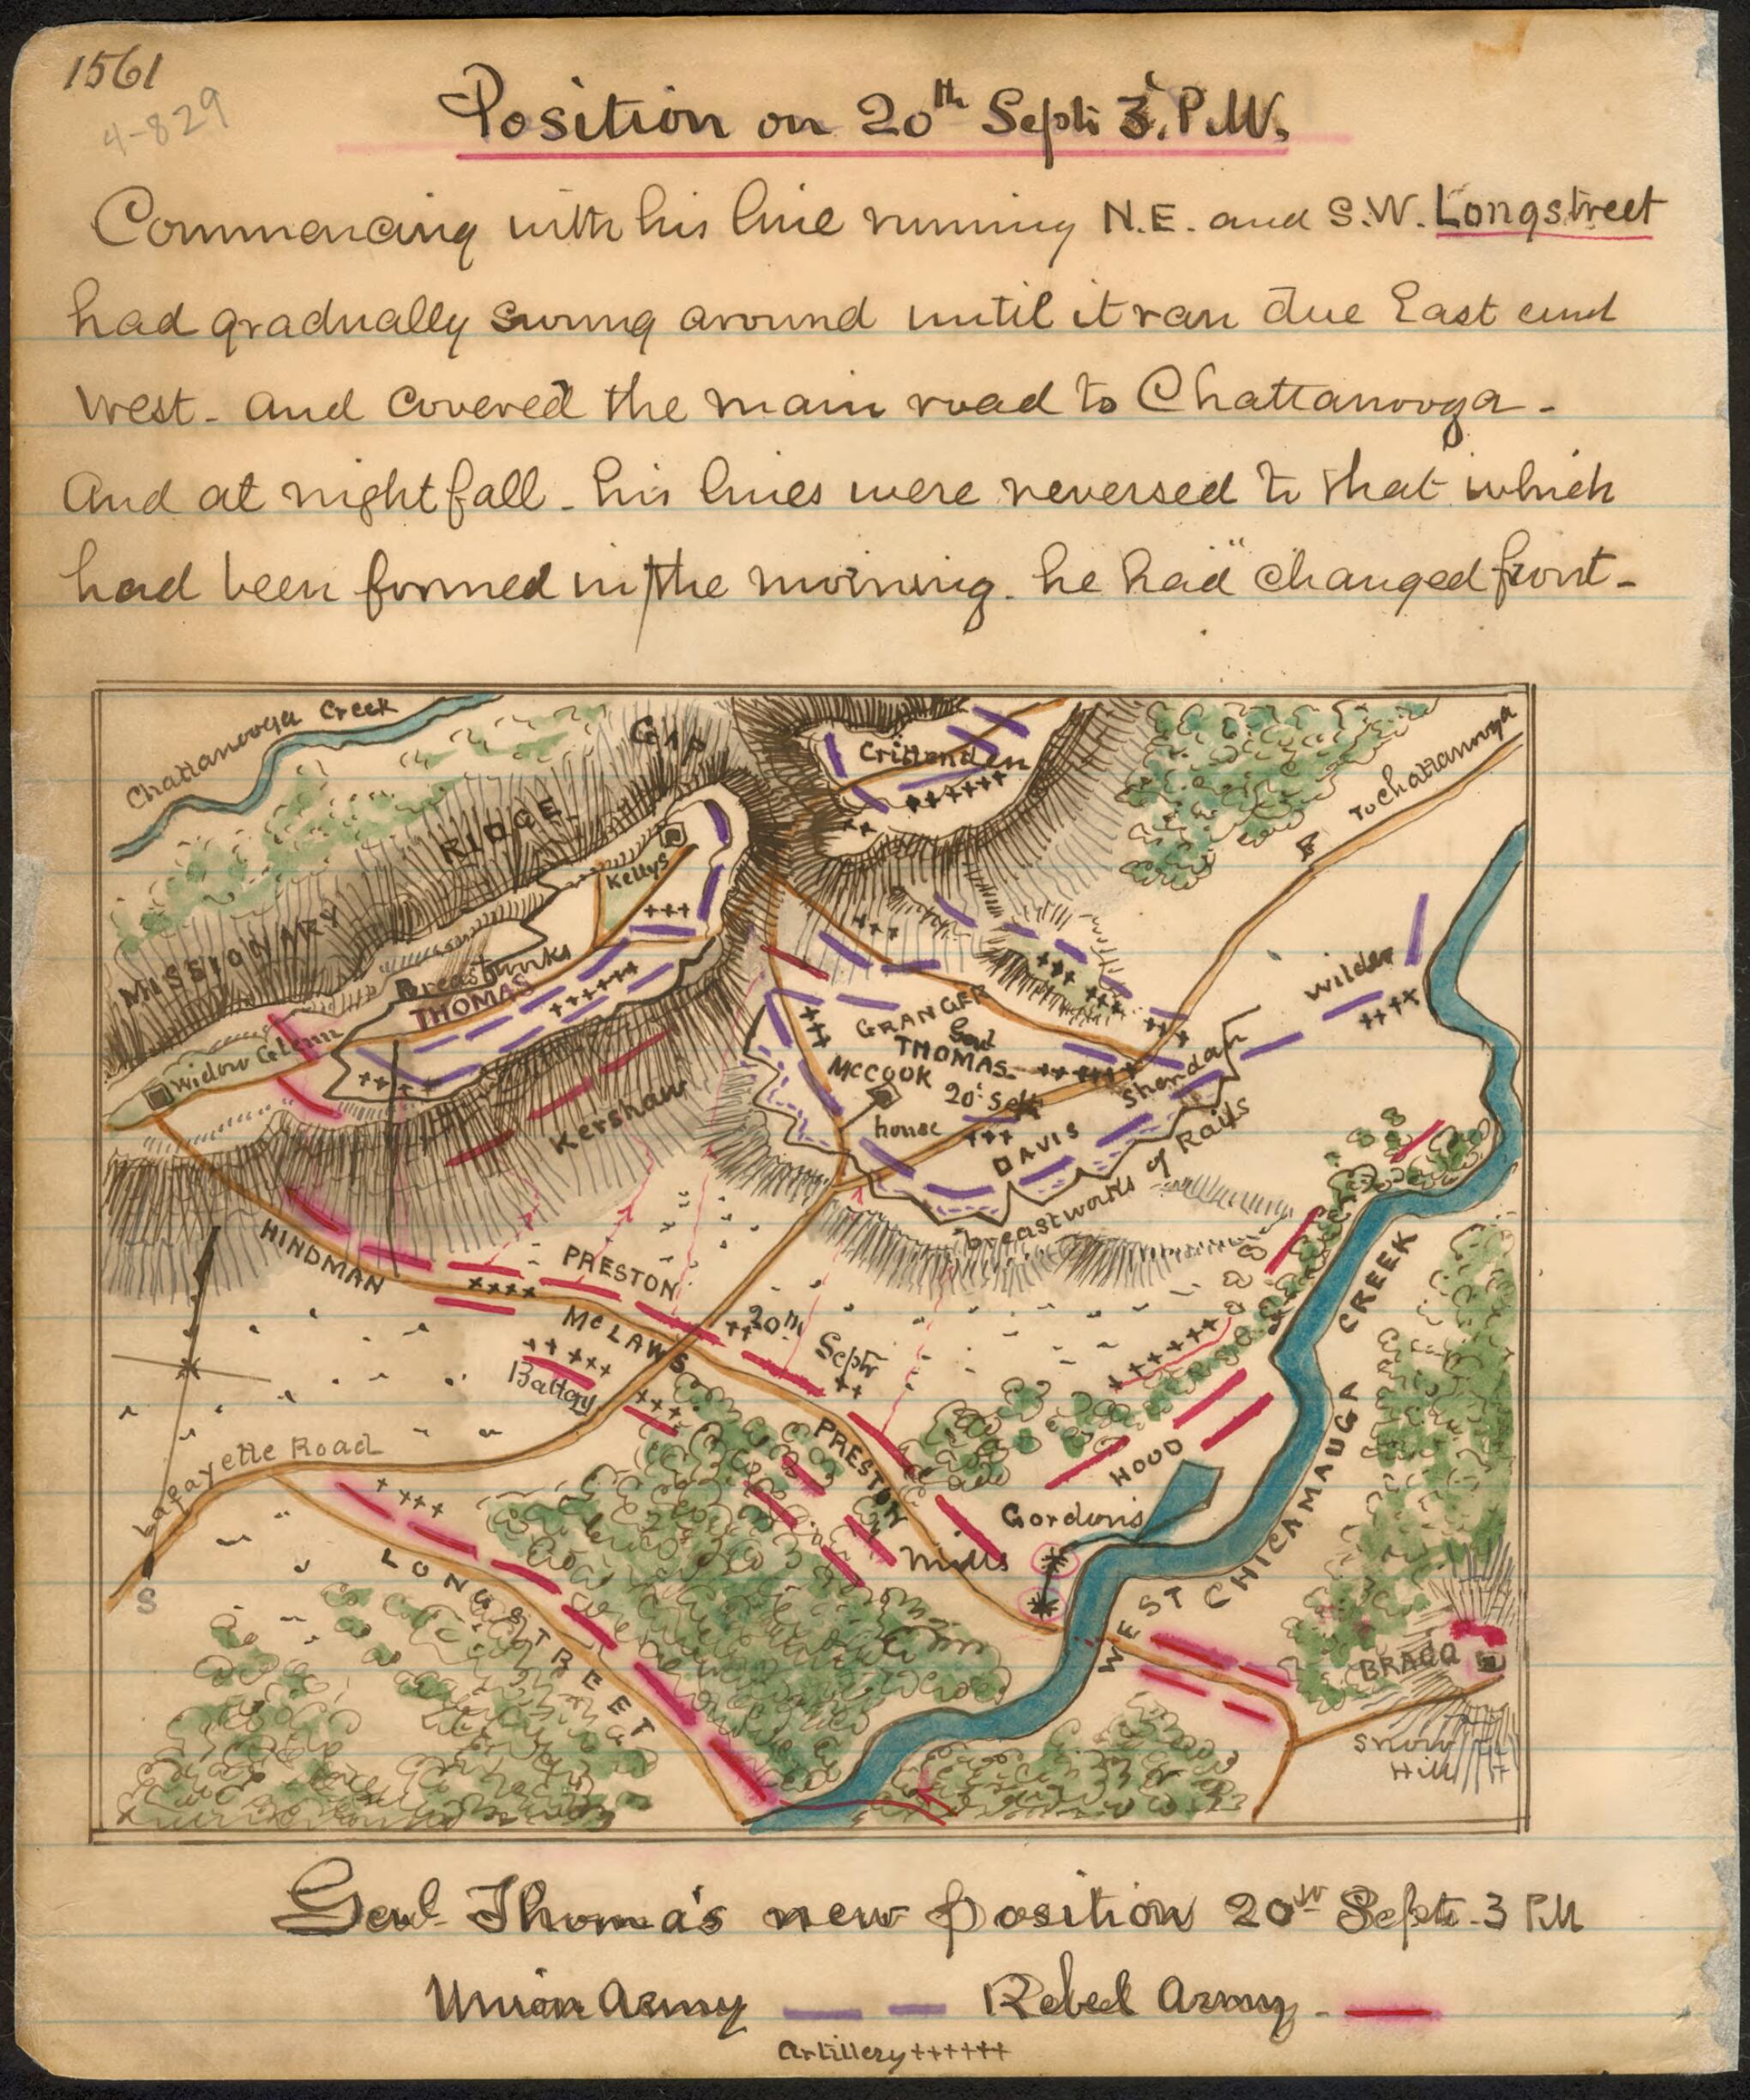 1561
4-829
Position on 20th Sept: 3. P.M.
Commencing with his line running N.E. and S.W. Longstreet
had gradually swung around until it ran due East and
West - and covered the main road to Chattanooga -
And at nightfall - his lines were reversed to that which
had been formed in the morning. he had "changed front -
Chattanooga Creek
GAP
Crittenden
To Chattanooga
RIDGE
MISSIONARY
Kellys
Breastworks
THOMAS
Widow Glenn
Kershaw
GRANGER
Genl
THOMAS
McCOOK
20: Sept
house
DAVIS
Sheridan
Wilder
breastworks of Rails
HINDMAN
PRESTON
McLAWS
20th
Septr
Battery
PRESTON
Lafayette Road
S
LONGSTREET
HOOD
Gordons
Mills
WEST CHICAMAUGA CREEK
BRAGG
Snow
Hill
Genl. Thoma's new position 20th Septr. 3 PM
Union Army
Rebel Army -
Artillery ++++++